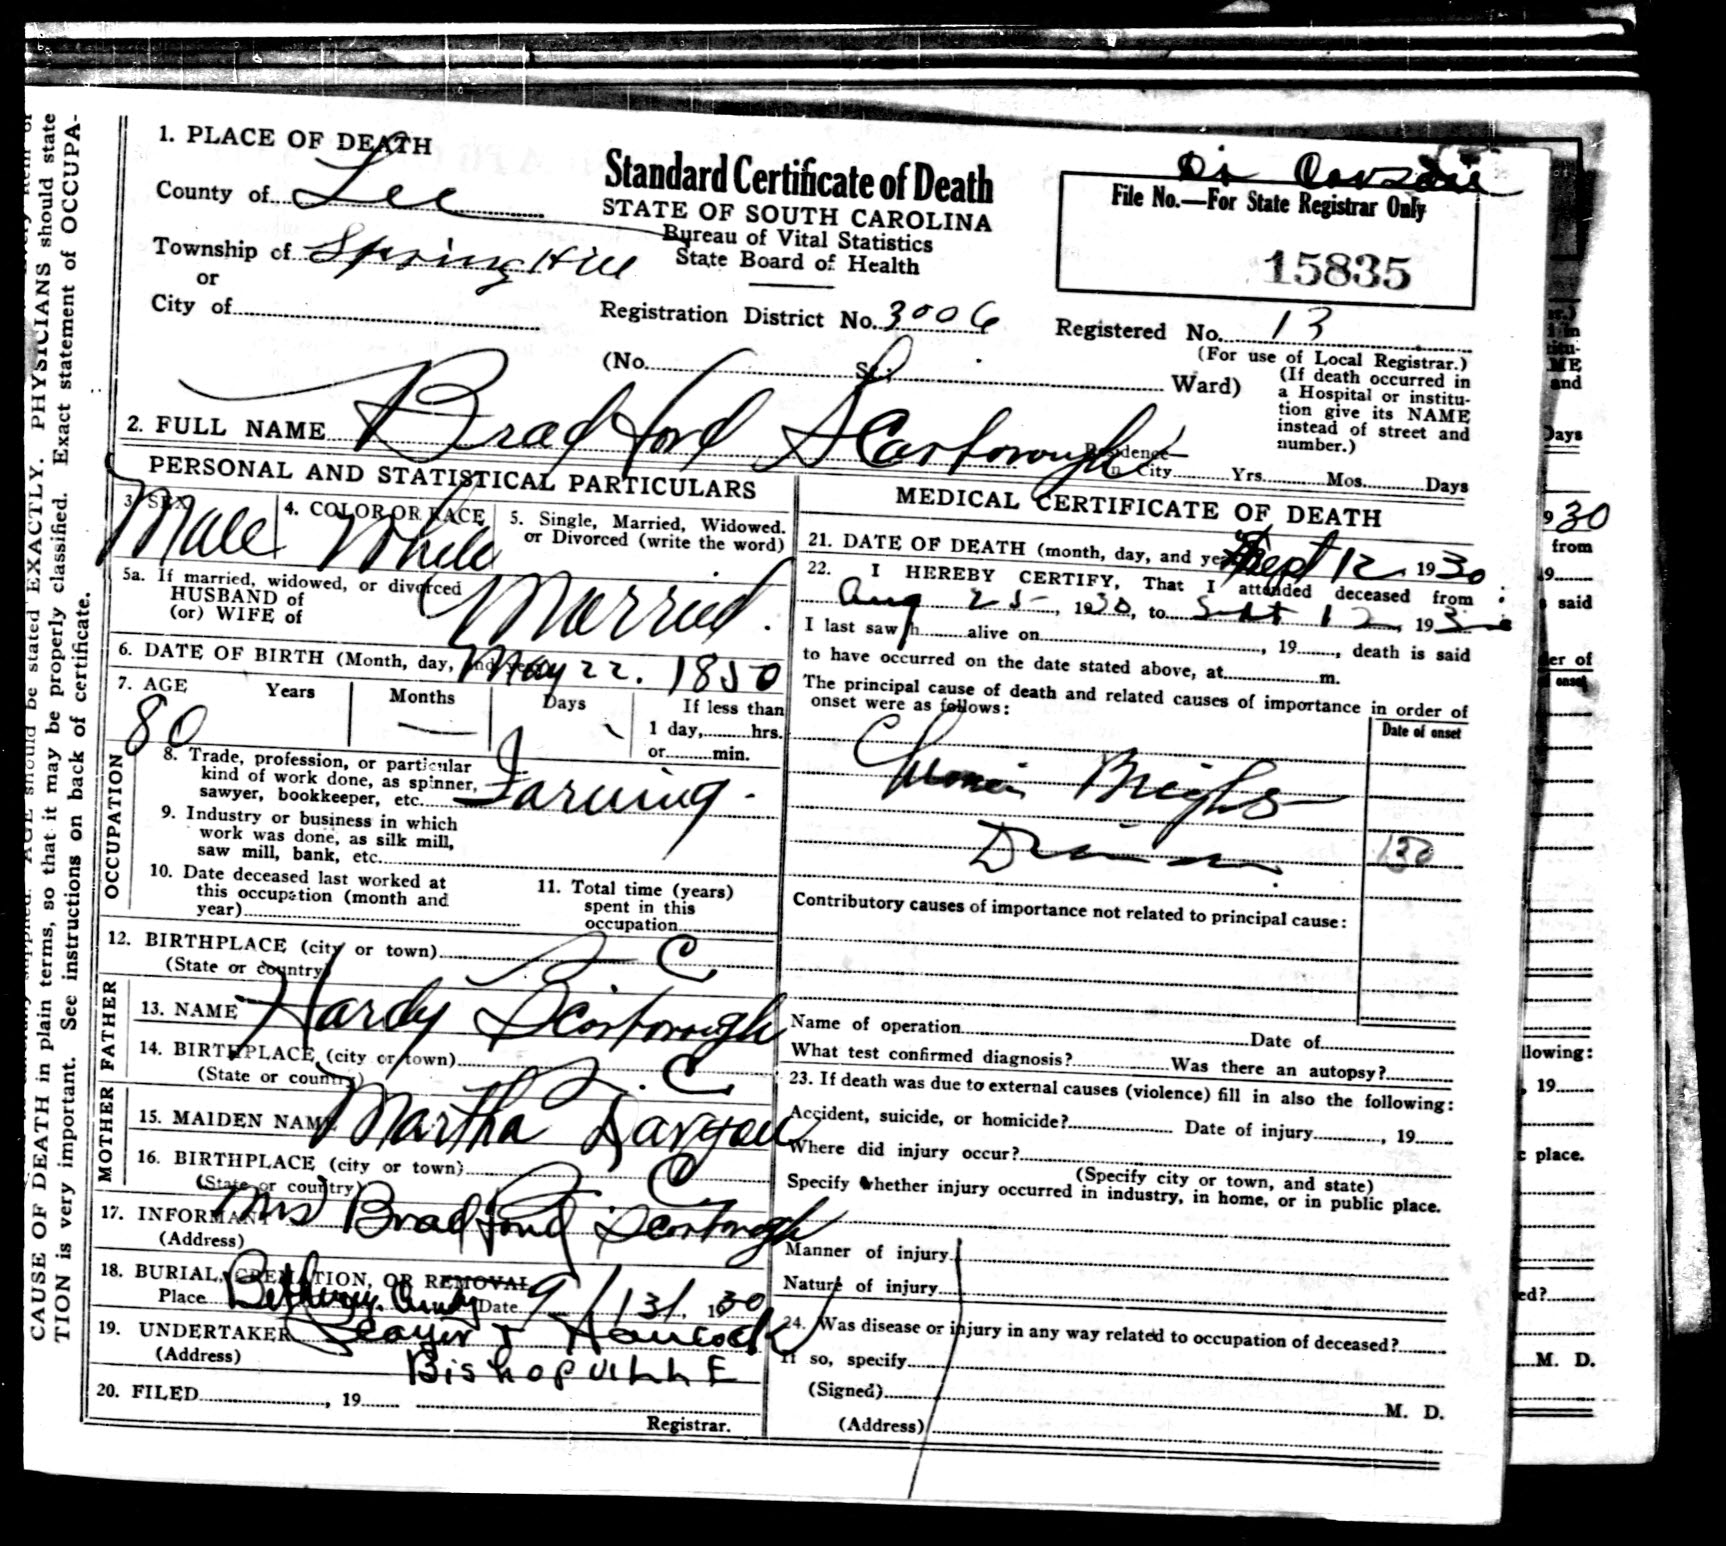 1. PLACE OF DEATH
County of Lee
Township of Spring Hill
or
City of
Standard Certificate of Death
STATE OF SOUTH CAROLINA
Bureau of Vital Statistics
State Board of Health
File No.—For State Registrar Only
15835
Registration District No. 3006
Registered No. 13
(For use of Local Registrar.)
(No. St.; Ward)
(If death occurred in
a Hospital or institu-
tion give its NAME
instead of street and
number.)
2. FULL NAME Bradford Scarborough
Residence
In City Yrs. Mos. Days
PERSONAL AND STATISTICAL PARTICULARS
3. SEX Male
4. COLOR OR RACE White
5. Single, Married, Widowed,
or Divorced (write the word)
Married.
5a. If married, widowed, or divorced
HUSBAND of
(or) WIFE of
6. DATE OF BIRTH (Month, day, and year) May 22. 1850
7. AGE Years Months Days
80 — 
If less than
1 day, hrs.
or min.
OCCUPATION
8. Trade, profession, or particular
kind of work done, as spinner,
sawyer, bookkeeper, etc. Farming.
9. Industry or business in which
work was done, as silk mill,
saw mill, bank, etc.
10. Date deceased last worked at
this occupation (month and
year)
11. Total time (years)
spent in this
occupation
12. BIRTHPLACE (city or town) S C
(State or country)
FATHER
13. NAME Hardy Scarborough
14. BIRTHPLACE (city or town) S. C
(State or country)
MOTHER
15. MAIDEN NAME Martha Dargan
16. BIRTHPLACE (city or town) S C
(State or country)
17. INFORMANT Mrs Bradford Scarborough
(Address)
18. BURIAL, CREMATION, OR REMOVAL
Place Bethany Date 9/13/ 1930
19. UNDERTAKER Hancock
(Address) BishopviLLE
20. FILED , 19
Registrar.
MEDICAL CERTIFICATE OF DEATH
21. DATE OF DEATH (month, day, and year) Sept 12 1930
22. I HEREBY CERTIFY, That I attended deceased from
Aug 25, 1930, to Sept 12, 1930
I last saw h alive on , 19 , death is said
to have occurred on the date stated above, at m.
The principal cause of death and related causes of importance in order of
onset were as follows:
Date of onset
Chronic Brights
130
Contributory causes of importance not related to principal cause:
Name of operation Date of
What test confirmed diagnosis? Was there an autopsy?
23. If death was due to external causes (violence) fill in also the following:
Accident, suicide, or homicide? Date of injury , 19
Where did injury occur?
(Specify city or town, and state)
Specify whether injury occurred in industry, in home, or in public place.
Manner of injury
Nature of injury
24. Was disease or injury in any way related to occupation of deceased?
If so, specify
(Signed) M. D.
(Address)
CAUSE OF DEATH in plain terms, so that it may be properly classified. Exact statement of OCCUPA-
TION is very important. See instructions on back of certificate.
AGE should be stated EXACTLY. PHYSICIANS should state
Days
30
from
said
lowing:
, 19
place.
M. D.